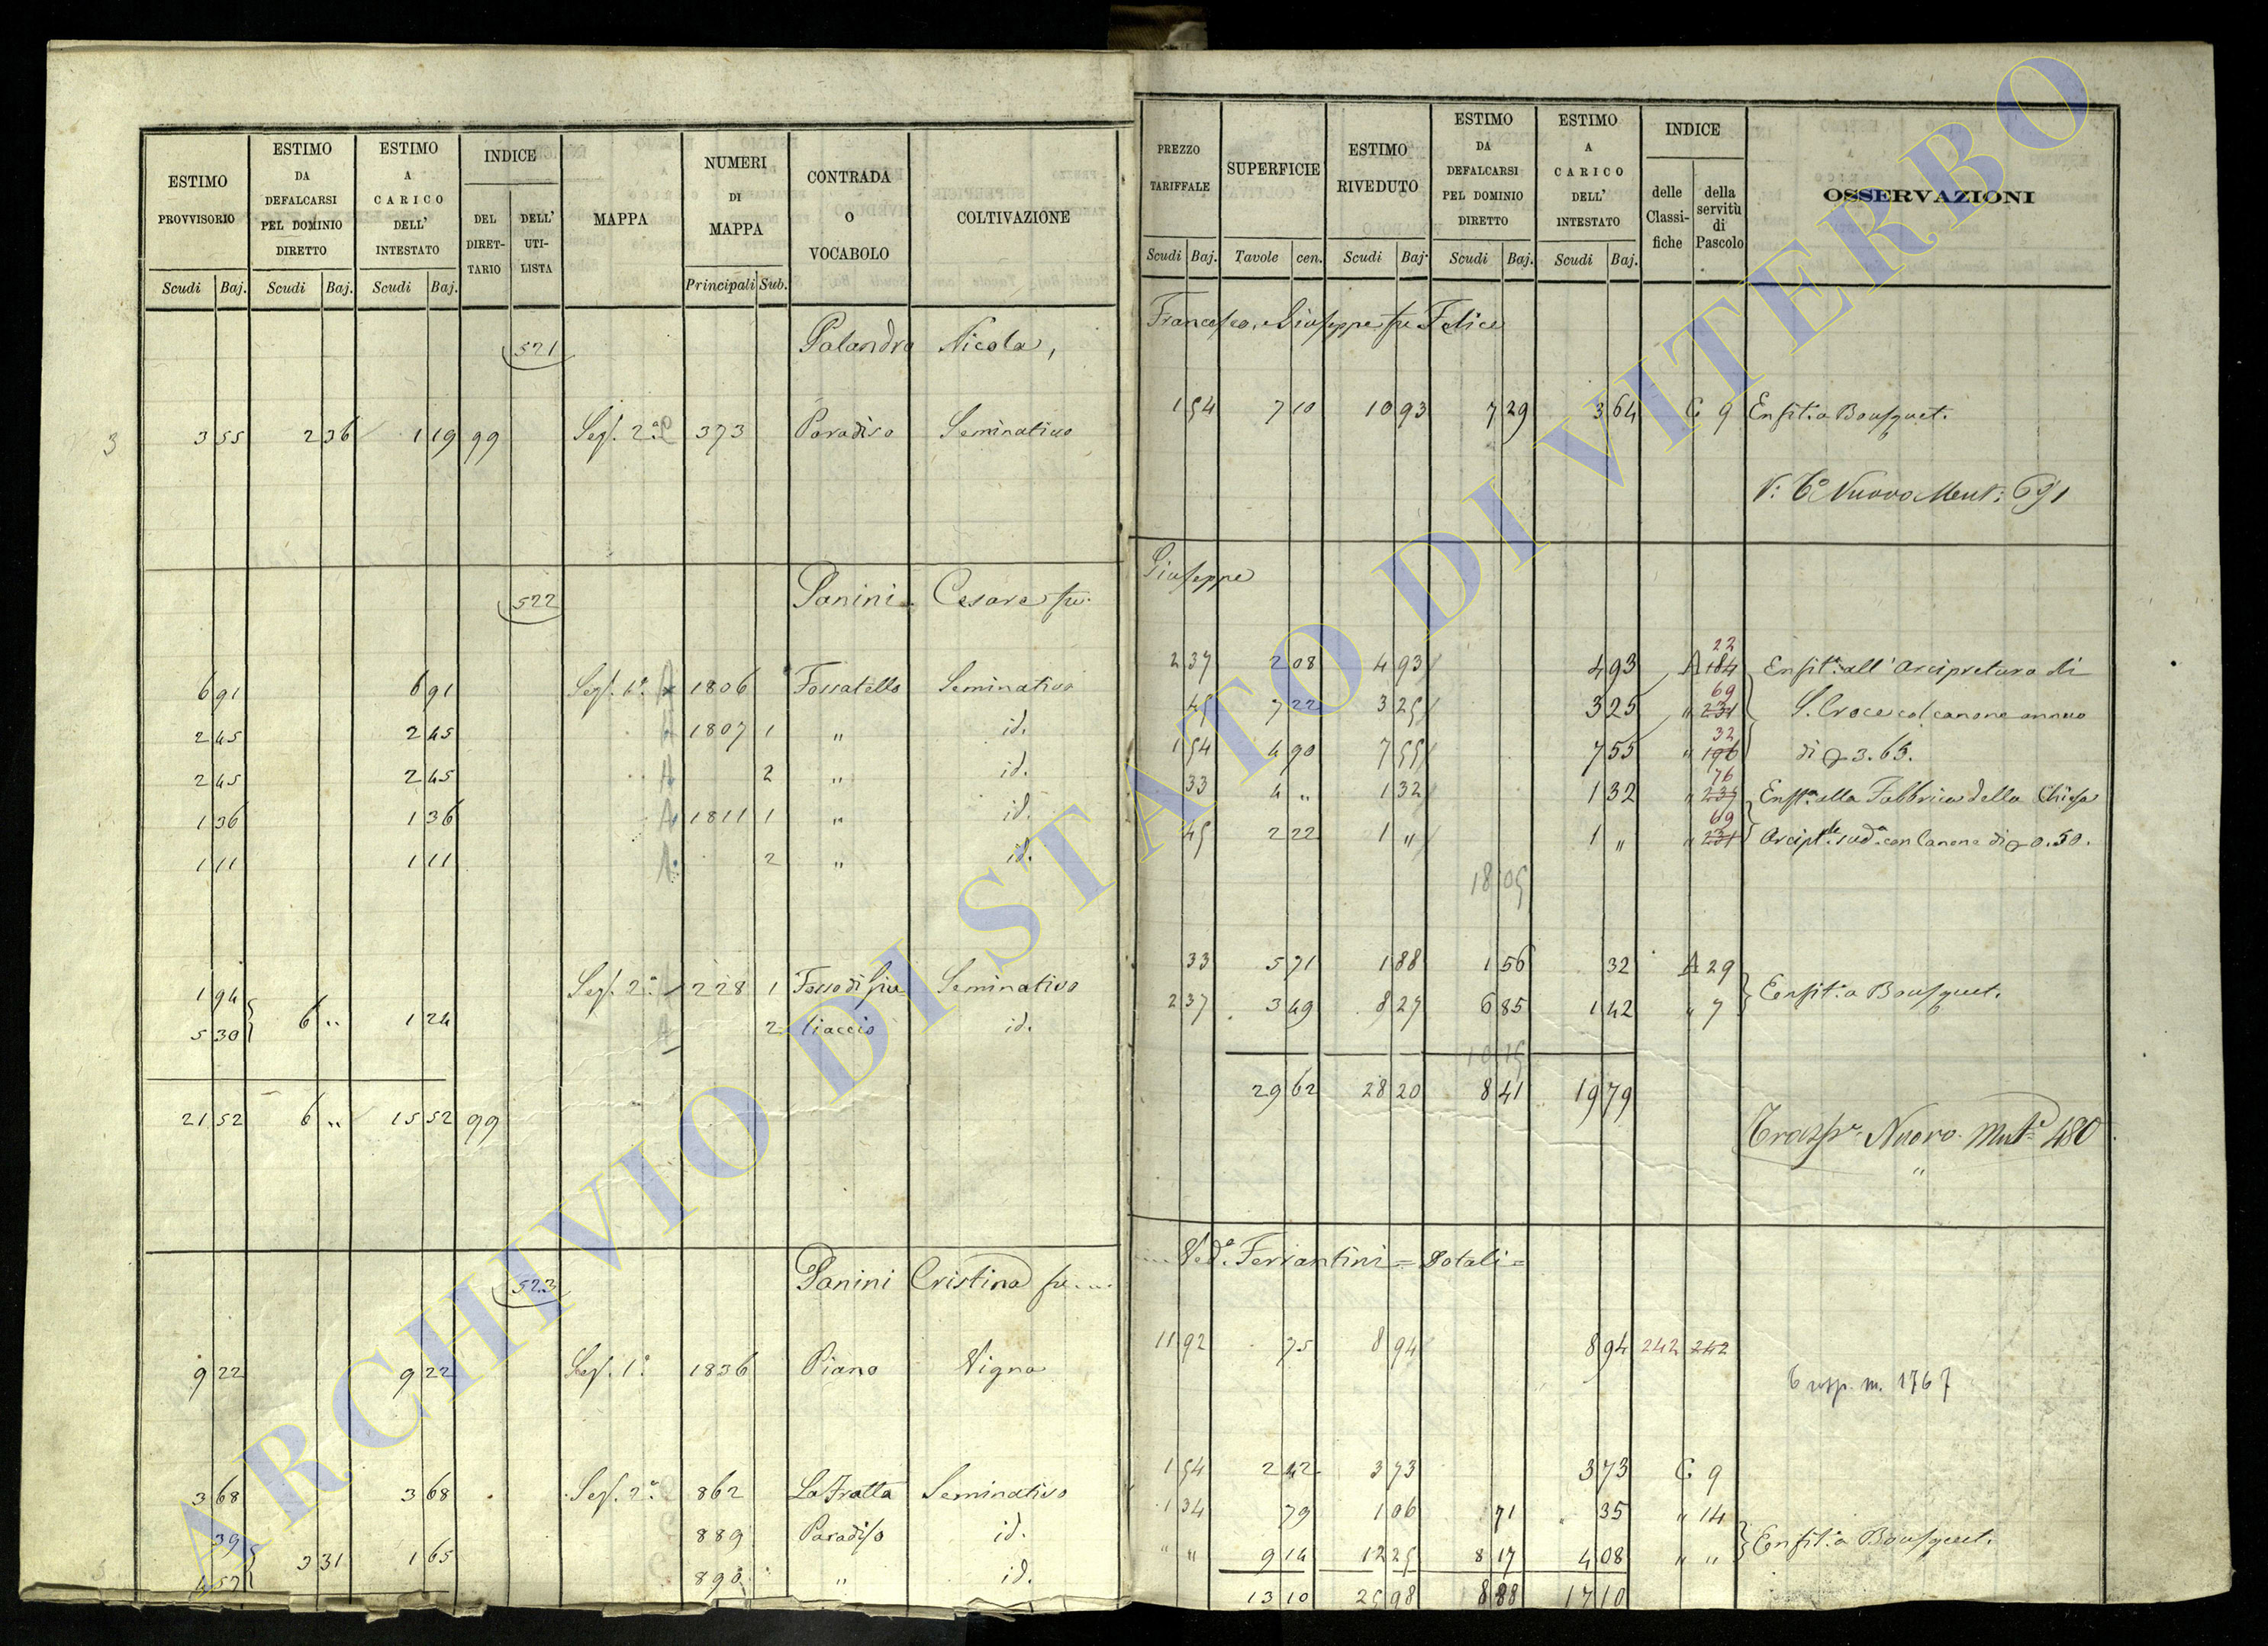 ESTIMO PROVVISORIO | ESTIMO DA DEFALCARSI PEL DOMINIO DIRETTO | ESTIMO A CARICO DELL' INTESTATO | INDICE | MAPPA | NUMERI DI MAPPA | CONTRADA O VOCABOLO | COLTIVAZIONE
DEL DIRET-TARIO | DELL' UTI-LISTA
Scudi Baj. | Scudi Baj. | Scudi Baj. | Principali Sub.
521 Palandra Nicola,
3 3 55 2 36 1 19 99 Sez. 2a. 373 Paradiso Seminativo
522 Panini Cesare fu
6 91 6 91 Sez. 1a. A 1806 Fossatello Seminativo
2 45 2 45 A 1807 1 " id.
2 45 2 45 A 2 " id.
1 36 1 36 A 1811 1 " id.
1 11 1 11 A 2 " id.
1 94 Sez. 2a. 228 1 Fosso di Seminativo
5 30 6 " 1 24 A 2 id.
21 52 6 " 15 52 99
523 Panini Cristina fu
9 22 9 22 Sez. 1a. 1836 Piano Vigna
3 68 3 68 Sez. 2a. 862 La Fratta Seminativo
39 889 Paradiso id.
4 57 3 31 1 65 890 " id.
PREZZO TARIFFALE | SUPERFICIE | ESTIMO RIVEDUTO | ESTIMO DA DEFALCARSI PEL DOMINIO DIRETTO | ESTIMO A CARICO DELL' INTESTATO | INDICE | OSSERVAZIONI
delle Classi-fiche | della servitù di Pascolo
Scudi Baj. | Tavole cen. | Scudi Baj. | Scudi Baj. | Scudi Baj.
Francesco, e Giuseppe fu Felice
1 54 7 10 10 93 7 29 3 64 C 9 Enfit. a Bousquet.
V: Nuovo 691
Giuseppe
22
2 37 2 08 4 93 4 93 A 184 Enfita. all' Arcipretura di
69
45 7 22 3 25 3 25 " 231 S. Croce col canone annuo
32
1 54 4 90 7 55 7 55 " 196 di 3.65.
76
33 4 " 1 32 1 32 " 239 Enfta. alla Fabbrica della Chiesa
69
45 2 22 1 " 1 " " 231 Arciple. sudа. con Canone di 0.50.
18 05
33 5 71 1 88 1 56 32 A 29
2 37 3 49 8 27 6 85 1 42 " 7 Enfit. a Bousquet.
10 15
29 62 28 20 8 41 19 79
Nuovo 480
"
Veda. Ferrantini = Dotali =
11 92 75 8 94 8 94 242 242
Trasp. m. 1767
1 54 2 42 3 73 3 73 C 9
1 34 79 1 06 71 35 " 14
" " 9 14 12 25 8 17 4 08 " " Enfit. a Bousquet.
13 10 25 98 8 88 17 10
ARCHIVIO DI STATO DI VITERBO